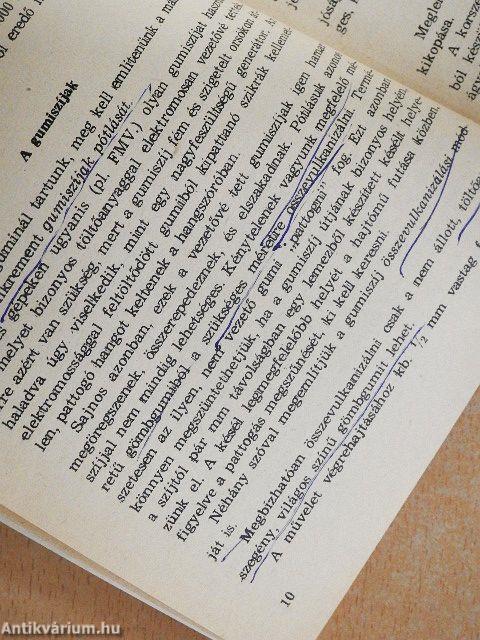 000
ól eredő
A gumiszíjak
guminál tartunk, meg kell említenünk a
krement gumiszíjak pótlását.
gépeken ugyanis (pl. FMV.) olyan gumiszíjat hasz
melyet bizonyos töltőanyaggal elektromosan vezetővé
re azért van szükség, mert a gumiszíj fém és szigetelt orsókon
haladva úgy viselkedik, mint egy nagyfeszültségű generátor.
elektromossággal feltöltődött gumiból kipattanó szikrák kelleme
len, pattogó hangot keltenek a hangszóróban.
Sajnos azonban, ezek a vezetővé tett gumiszíjak igen hama
megöregszenek, összerepedeznek, és elszakadnak. Pótlásuk azono
szíjjal nem mindig lehetséges. Kénytelenek vagyunk megfelelő mé-
retű gömbgumiból a szükséges méretre összevulkanizálni. Termé-
szetesen az ilyen, nem vezető gumi „pattogni” fog. Ezt azonban
könnyen megszüntethetjük, ha a gumiszíj útjának bizonyos helyén,
a szíjtól pár mm távolságban egy lemezből készített késélt helye-
zünk el. A késél legmegfelelőbb helyét a hajtómű futása közben,
figyelve a pattogás megszűnését, ki kell keresni.
Néhány szóral megemlítjük a gumiszíj összevulkanizálási mód-
ját is.
Megbízhatóan összevulkanizálni csak a nem állott, töltőa
szegény, világos színű gömbgumit lehet.
A művelet végrehajtásához kb. 1/2 mm vastag
10
jósá
ges,
Meglen
kikopása.
A korsz
ból kés
Antikvárium.hu